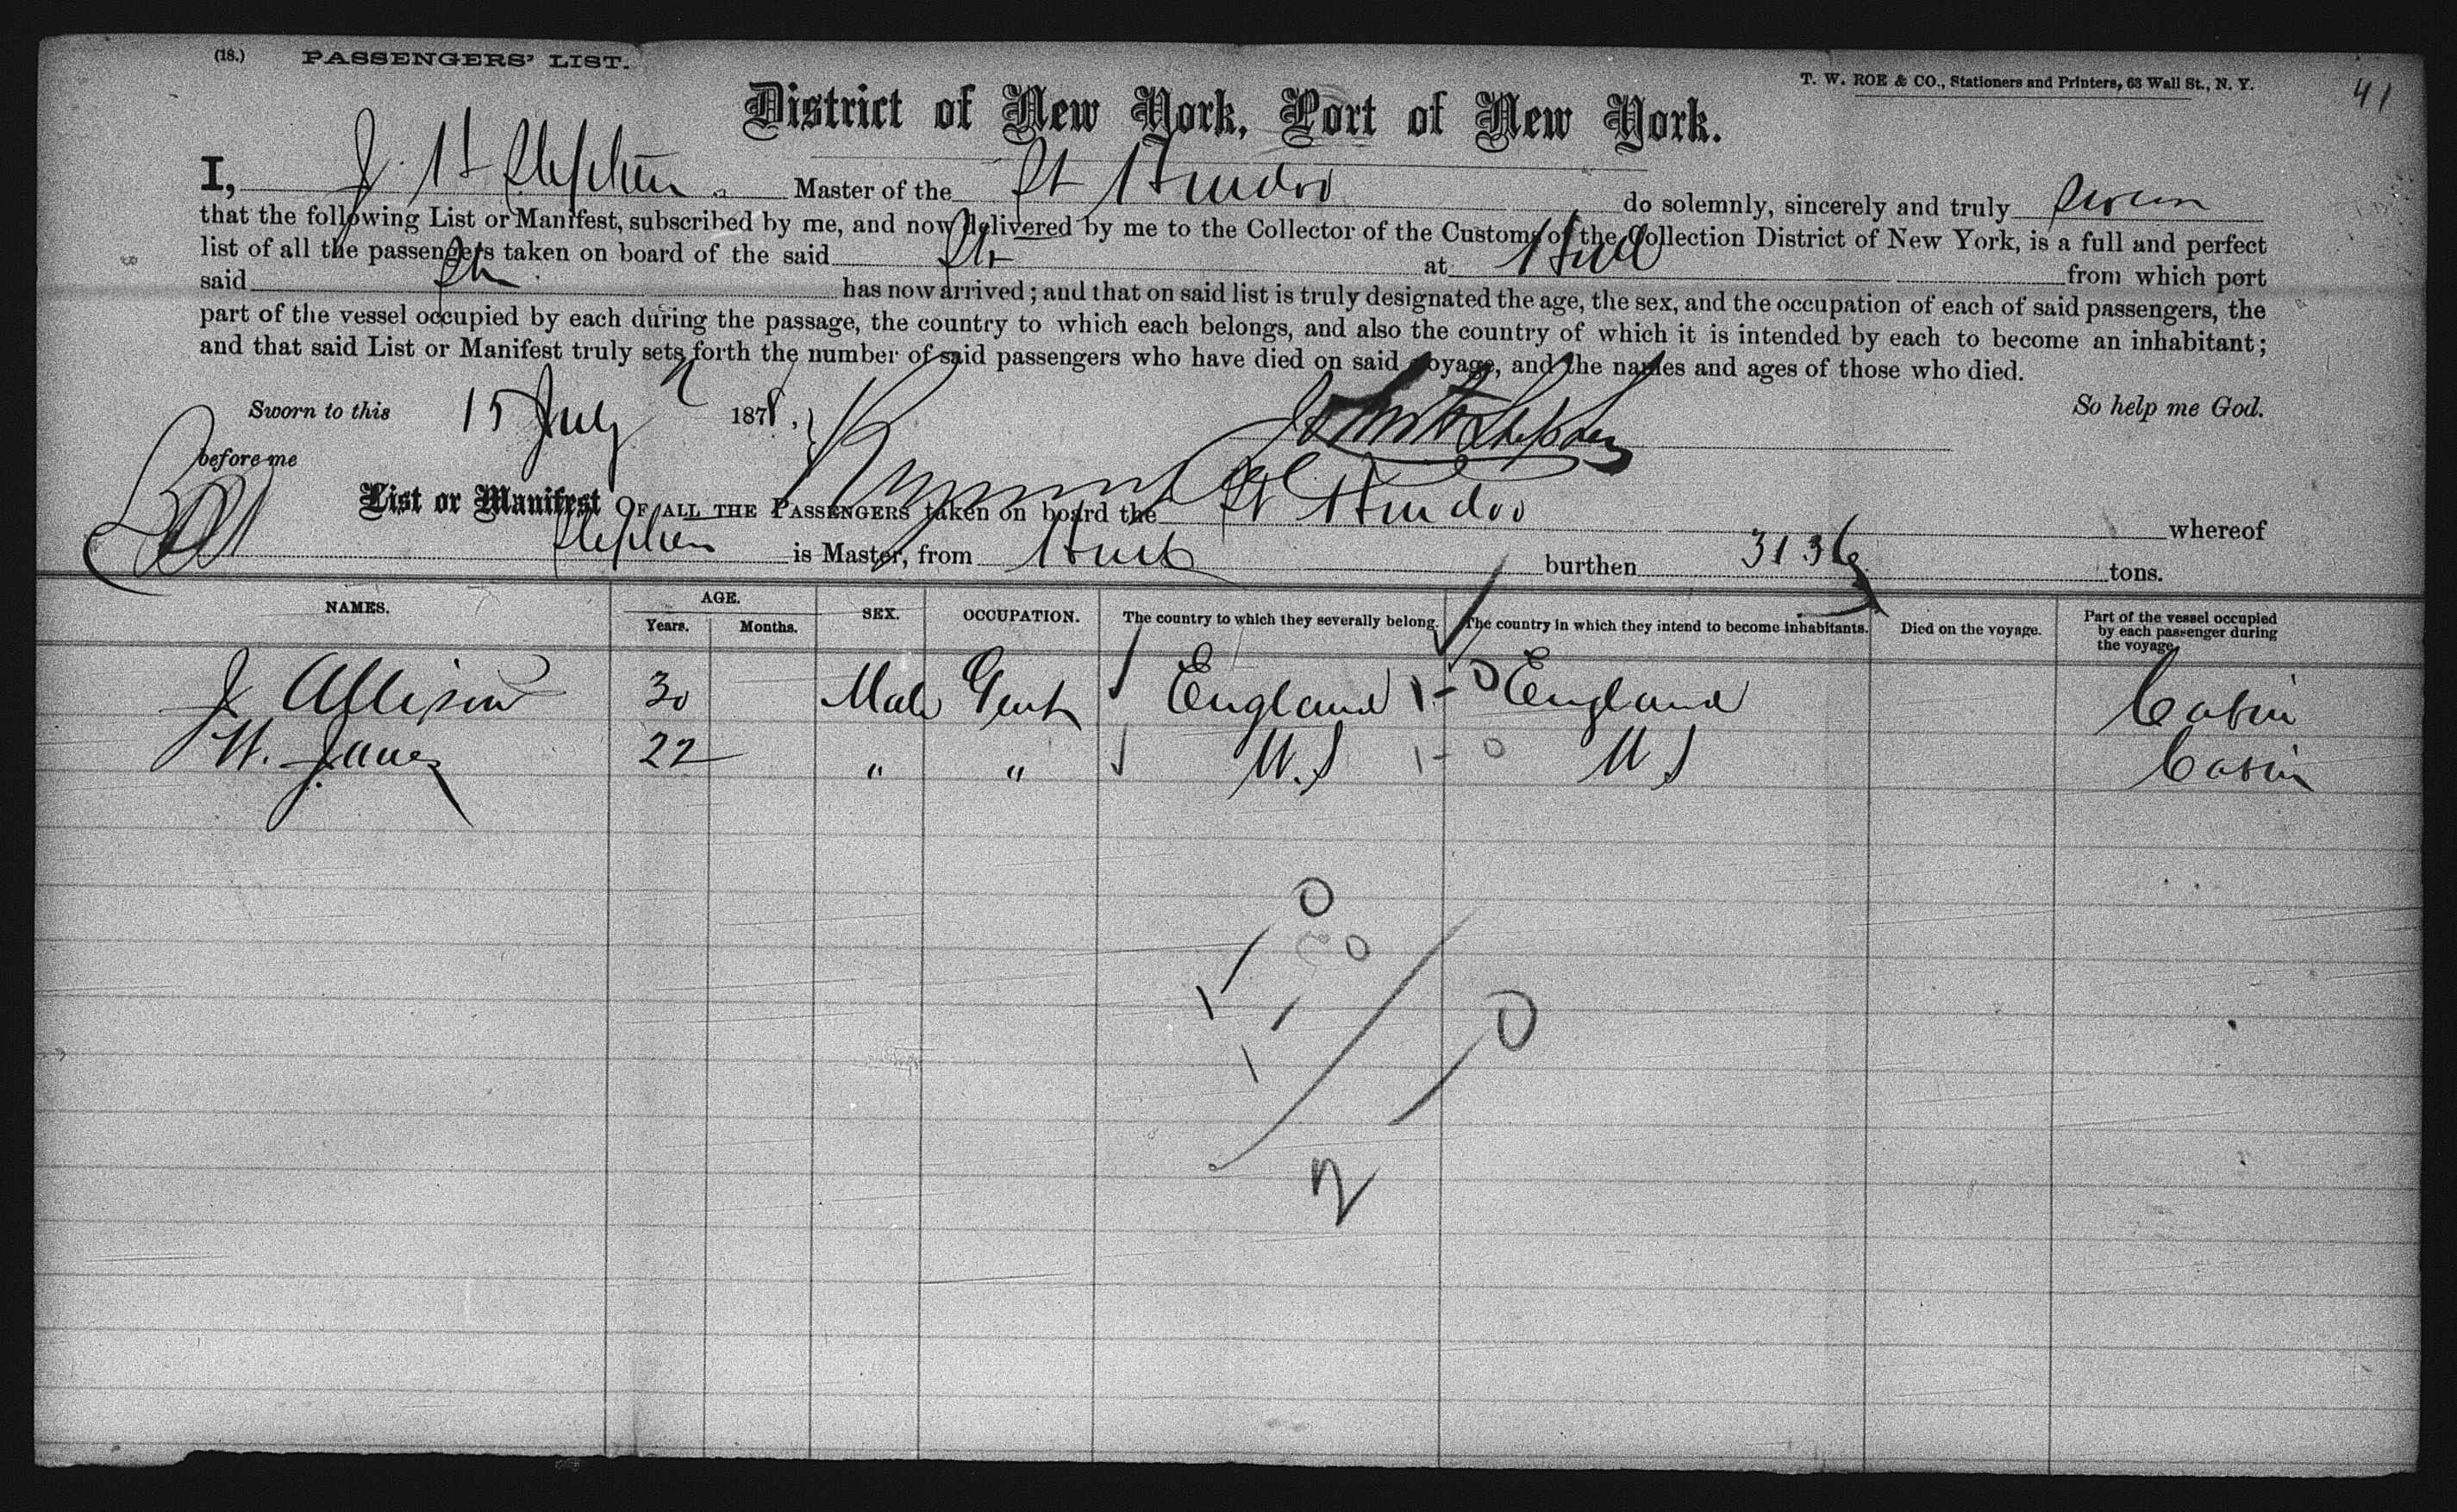 (18.) PASSENGERS' LIST.
T. W. ROE & CO., Stationers and Printers, 63 Wall St., N. Y.
41
District of New York, Port of New York.
I, J. H Stephen Master of the St Hindoo do solemnly, sincerely and truly swear
that the following List or Manifest, subscribed by me, and now delivered by me to the Collector of the Customs of the Collection District of New York, is a full and perfect
list of all the passengers taken on board of the said Str at Hull from which port
said Str has now arrived; and that on said list is truly designated the age, the sex, and the occupation of each of said passengers, the
part of the vessel occupied by each during the passage, the country to which each belongs, and also the country of which it is intended by each to become an inhabitant;
and that said List or Manifest truly sets forth the number of said passengers who have died on said voyage, and the names and ages of those who died.
Sworn to this 15 July 1878. So help me God.
before me
List or Manifest OF ALL THE PASSENGERS taken on board the St Hindoo whereof
Stephen is Master, from Hull burthen 3136 tons.
NAMES. AGE. Years. Months. SEX. OCCUPATION. The country to which they severally belong. The country in which they intend to become inhabitants. Died on the voyage. Part of the vessel occupied by each passenger during the voyage.
J Allison 30 Male Gent England 1-0 England Cabin
W. Jones 22 " " U.S 1-0 U S Cabin
0
0
1
1
0
2